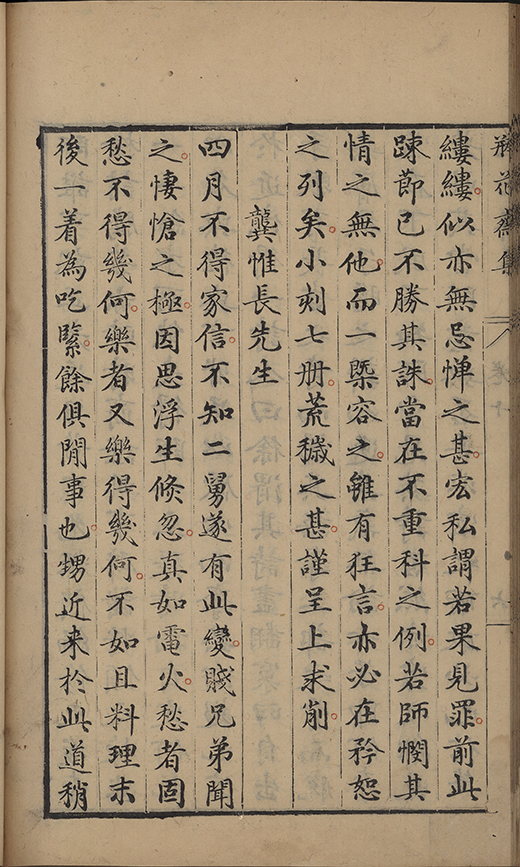 瓶花齋集
縷縷似亦無忌憚之甚宏私謂若果見罪前此
踈節已不勝其誅當在不重科之例若師憫其
情之無他而一槩容之雖有狂言亦必在矜恕
之列矣小刻七册荒穢之甚謹呈上求削
龔惟長先生
四月不得家信不知二舅遂有此變賤兄弟聞
之悽愴之極因思浮生倏忽真如電火愁者固
愁不得幾何樂者又樂得幾何不如且料理末
後一着為吃緊餘俱閒事也甥近来於此道稍